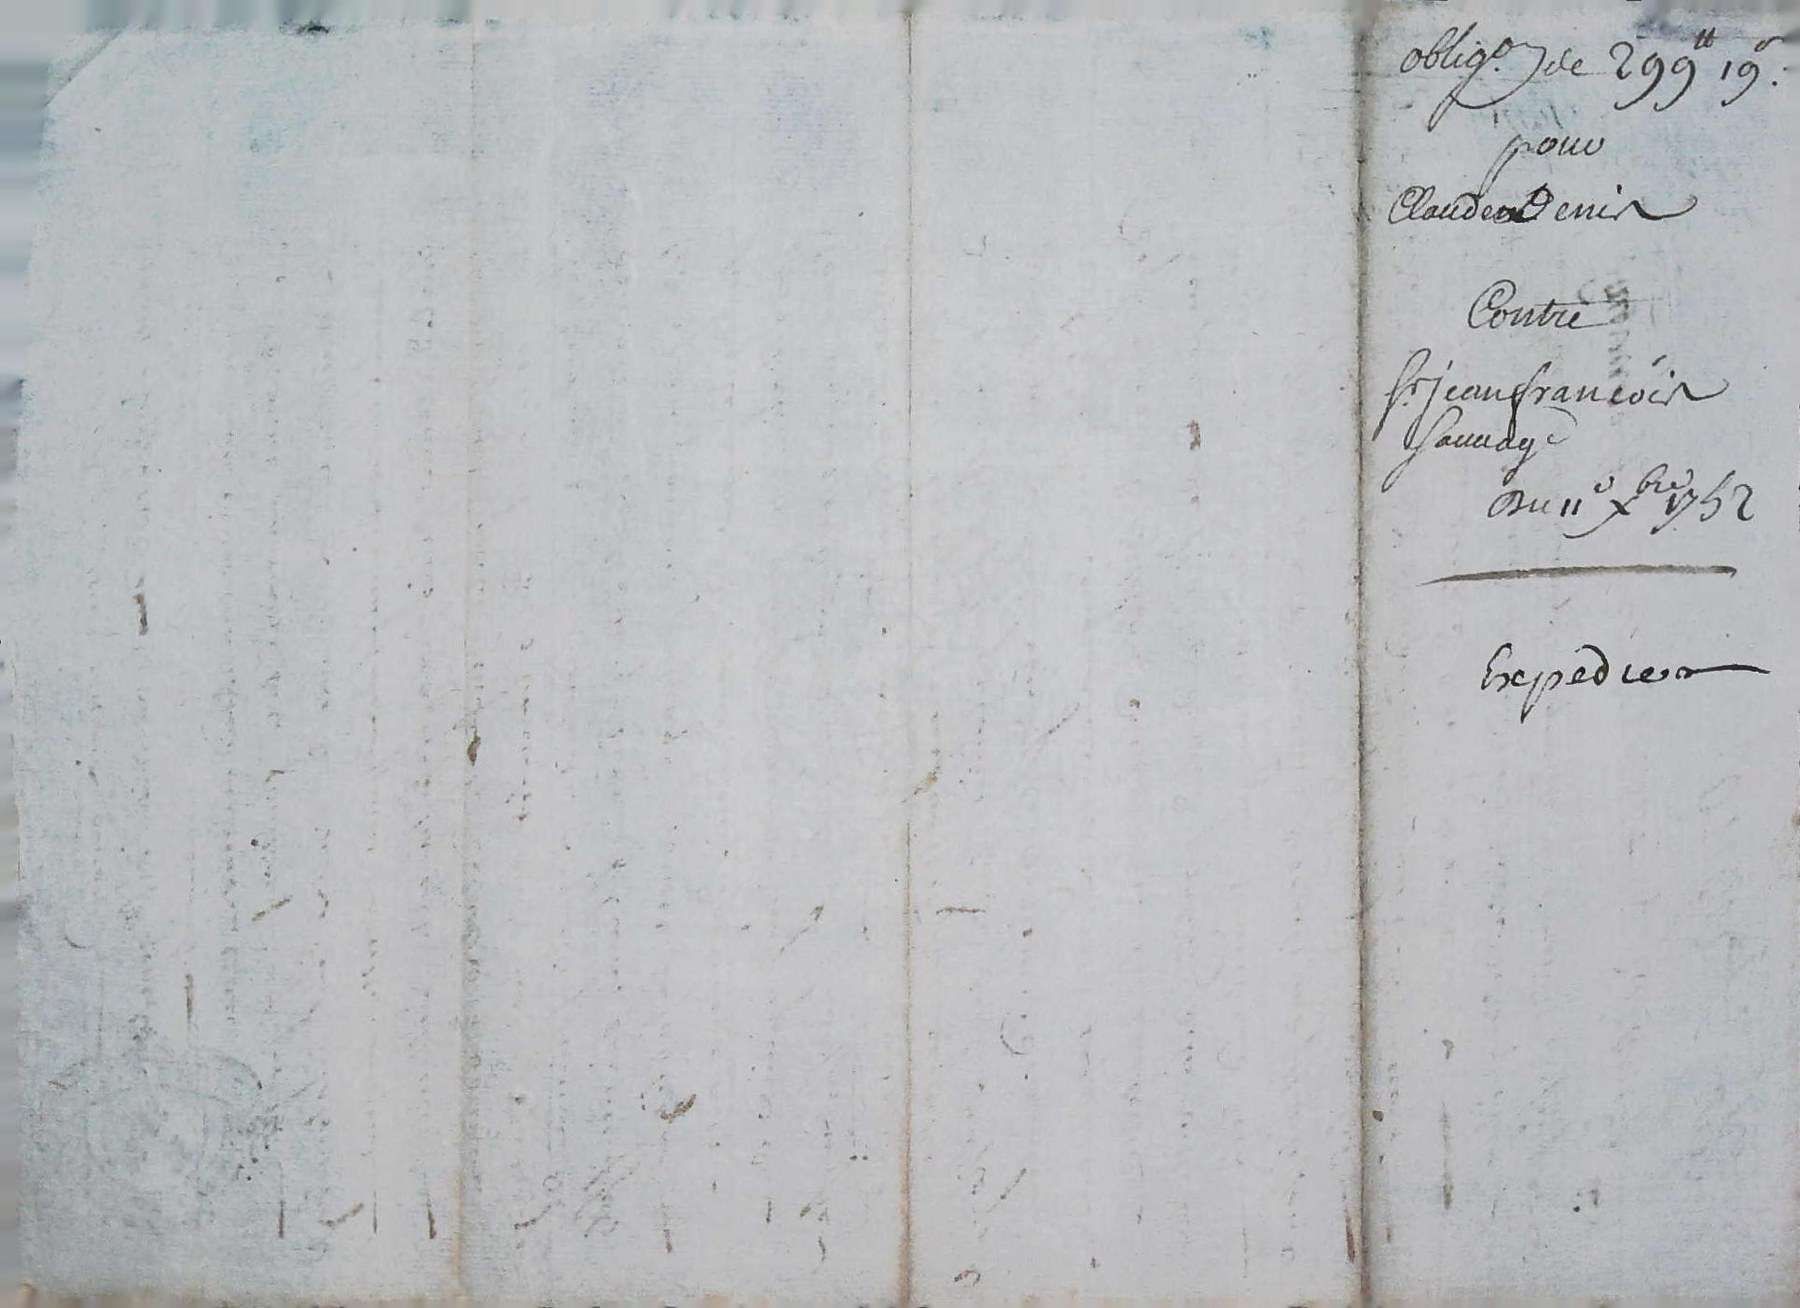 oblig.on de 299tt 19s.
pour
Claude Denis
Contre
Sr jean francois
Sauvage
Du 11e Xbre 1752
Expédié